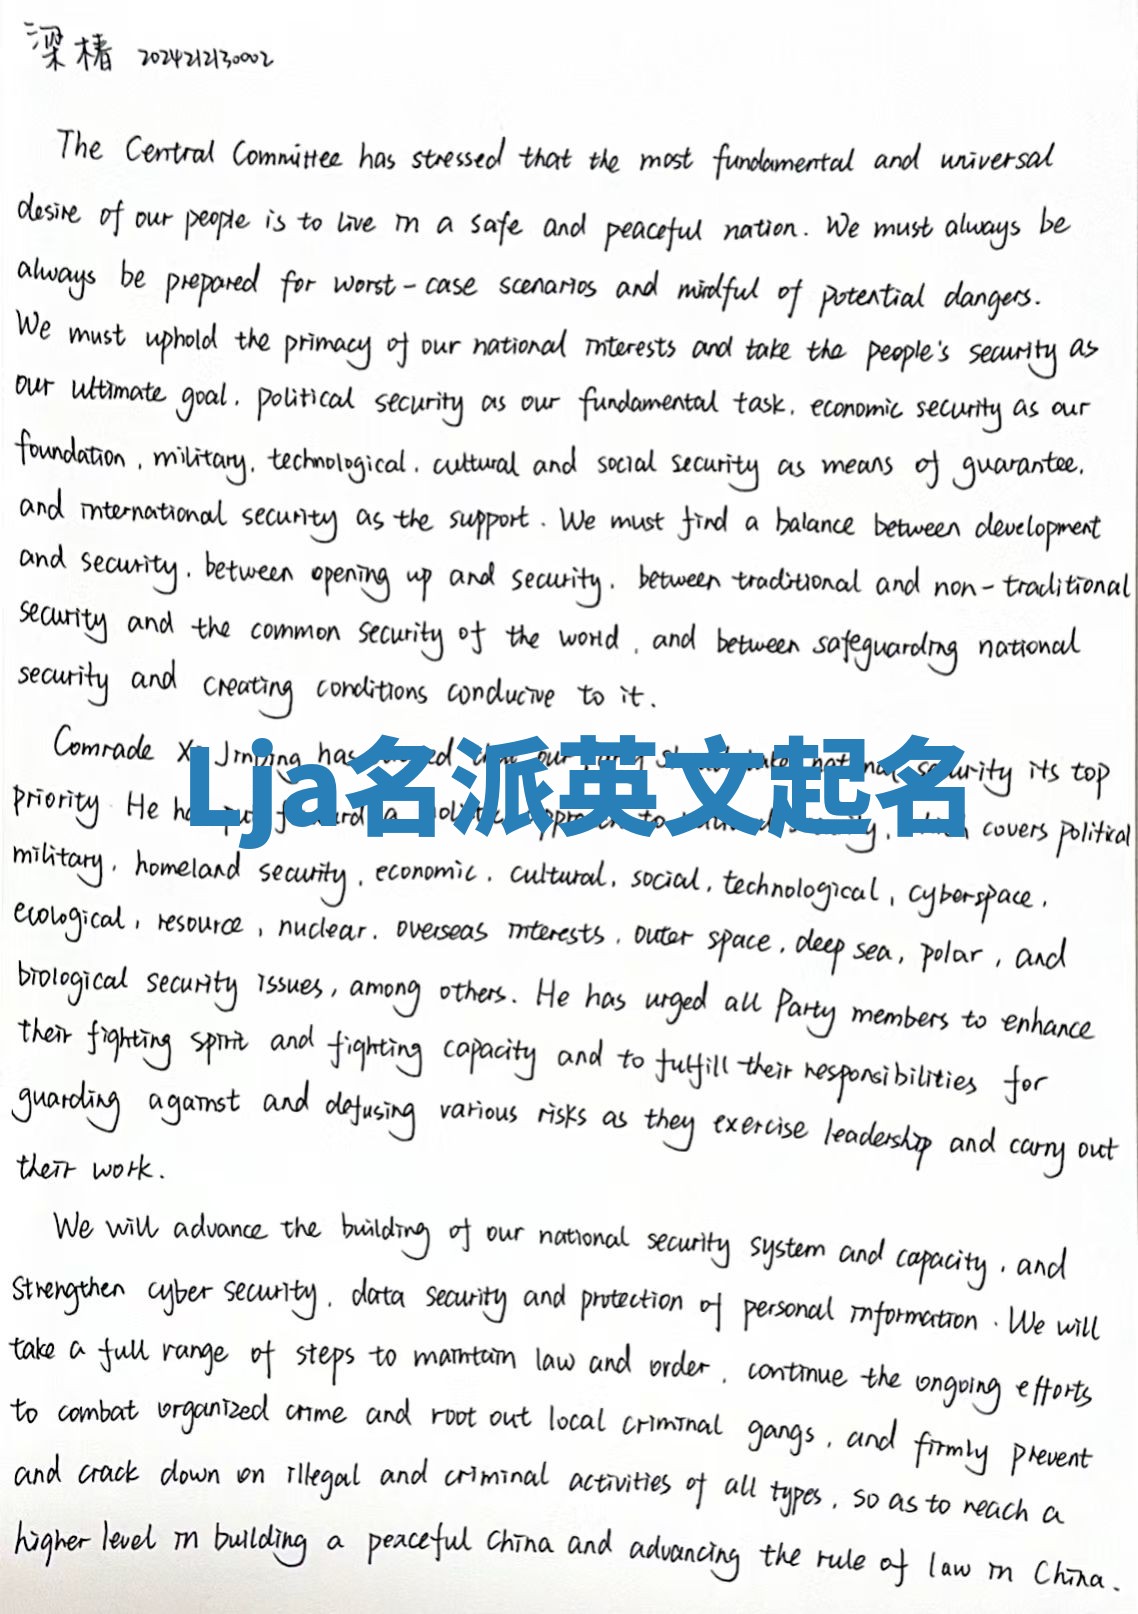 梁楮 2024212130002
The Central Committee has stressed that the most fundamental and universal
desire of our people is to live in a safe and peaceful nation. We must always be
always be prepared for worst-case scenarios and mindful of potential dangers.
We must uphold the primacy of our national interests and take the people's security as
our ultimate goal, political security as our fundamental task, economic security as our
foundation, military, technological, cultural and social security as means of guarantee,
and international security as the support. We must find a balance between development
and security, between opening up and security, between traditional and non-traditional
security and the common security of the world, and between safeguarding national
security and creating conditions conducive to it.
Comrade Xi Jinping has our take national security its top
Lja名派英文起名
priority. He has a to covers political
military, homeland security, economic, cultural, social, technological, cyberspace,
ecological, resource, nuclear, overseas interests, outer space, deep sea, polar, and
biological security issues, among others. He has urged all Party members to enhance
their fighting spirit and fighting capacity and to fulfill their responsibilities for
guarding against and defusing various risks as they exercise leadership and carry out
their work.
We will advance the building of our national security system and capacity, and
strengthen cyber security, data security and protection of personal information. We will
take a full range of steps to maintain law and order, continue the ongoing efforts
to combat organized crime and root out local criminal gangs, and firmly prevent
and crack down on illegal and criminal activities of all types, so as to reach a
higher level in building a peaceful China and advancing the rule of law in China.